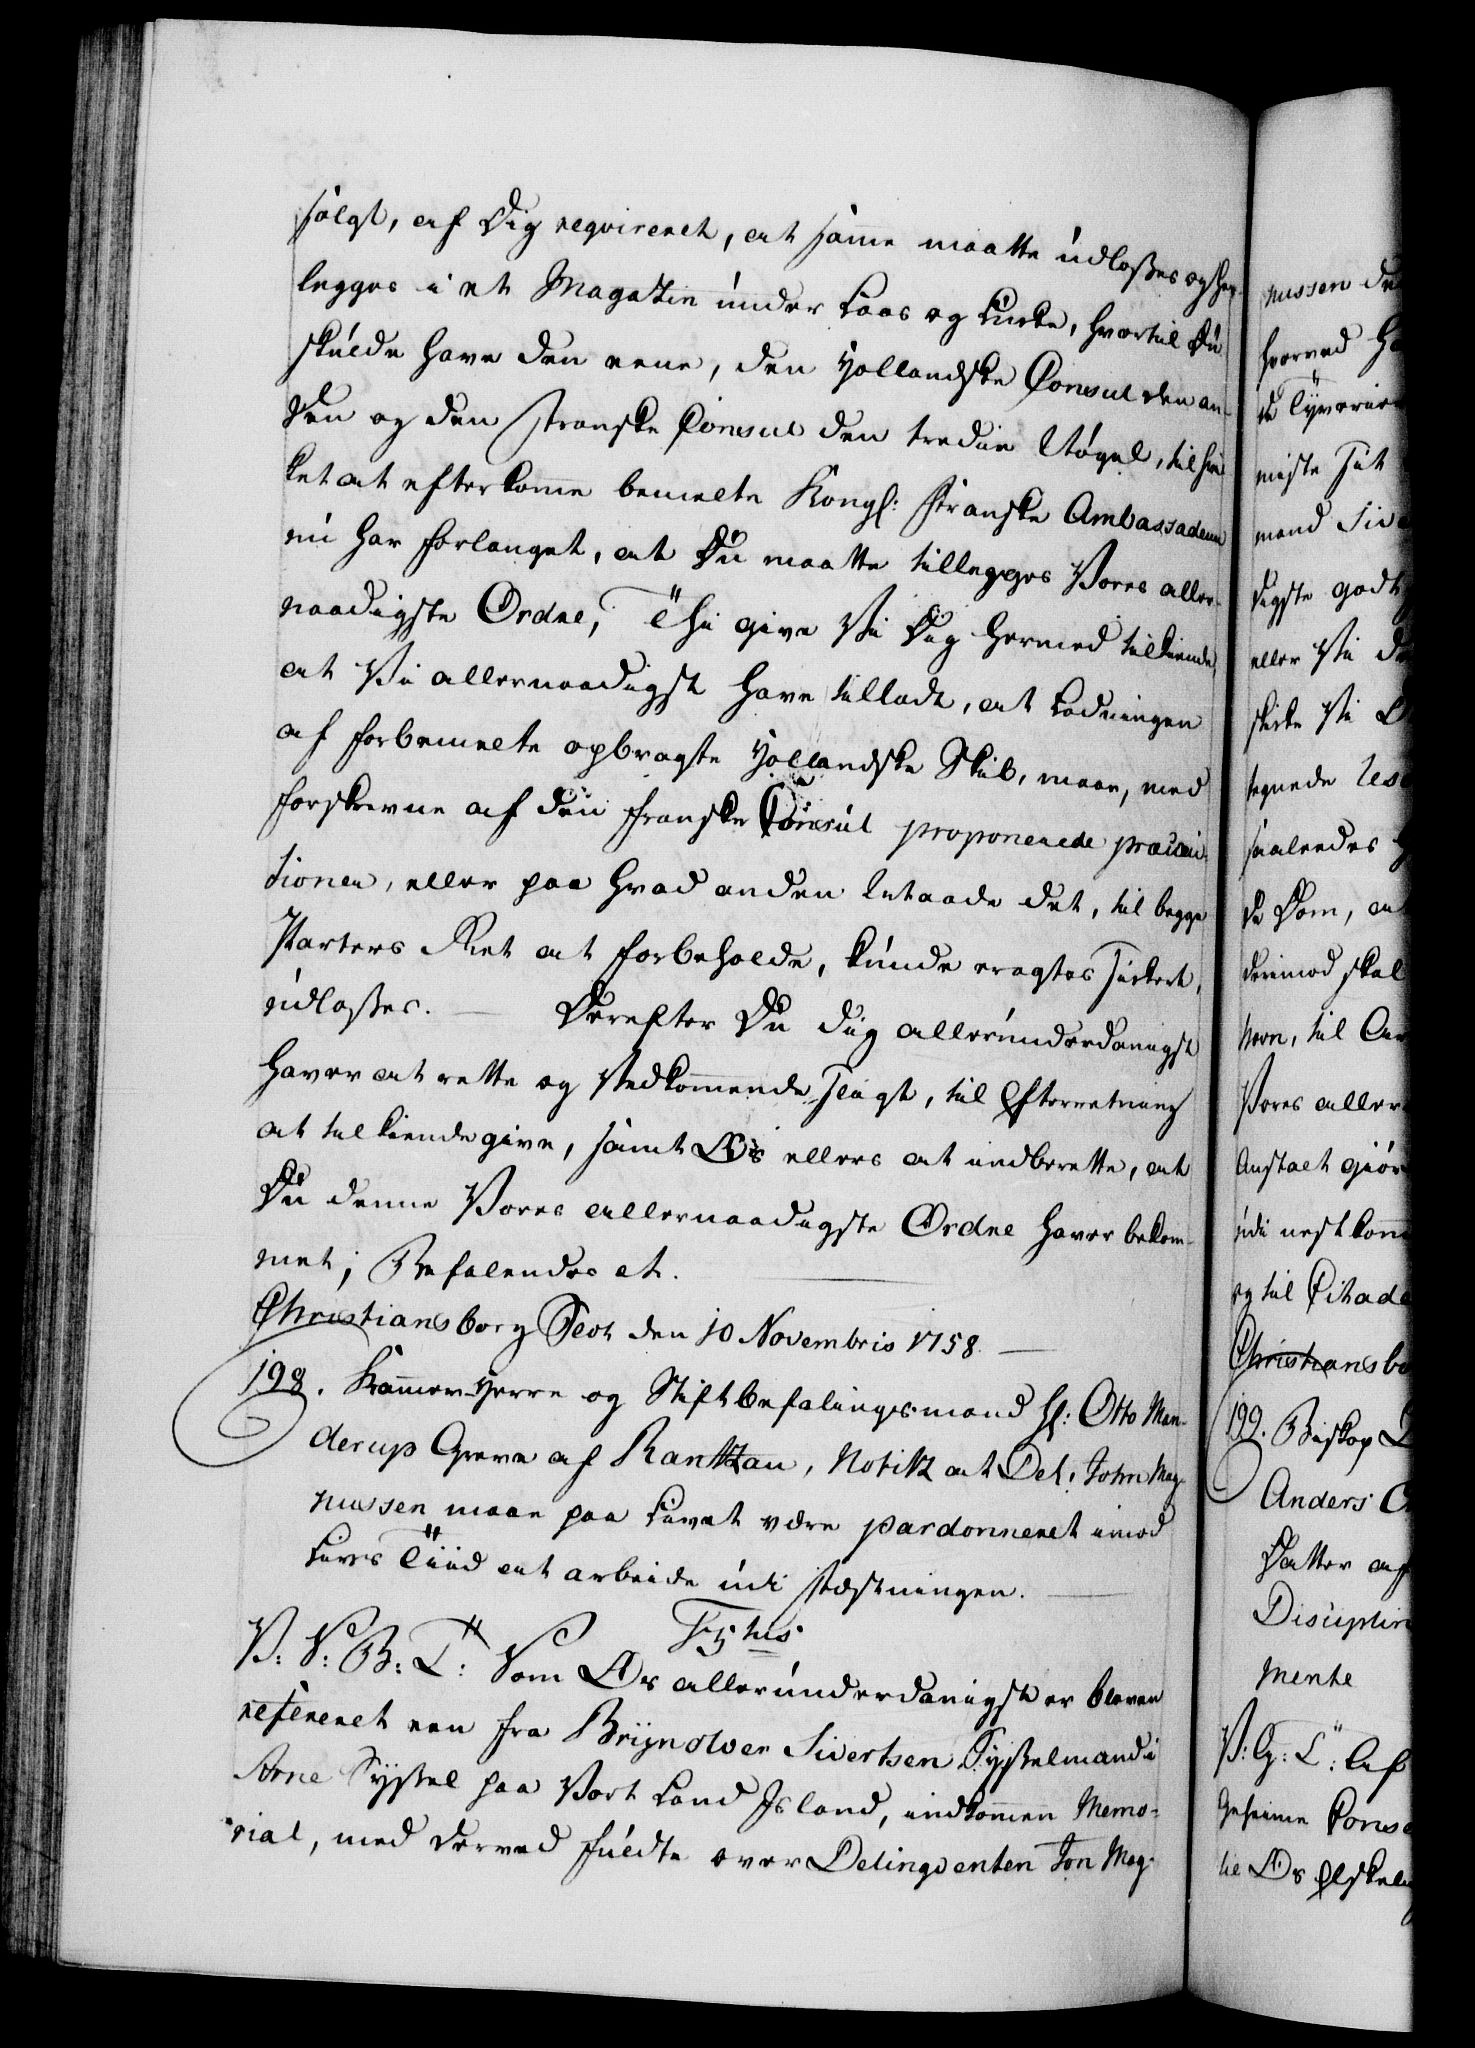 følgt, af Dig reqvireret, at samme maatte udlosses og hen-
legges i et Magazin under Laas og Lukke, hvortil Du
skulde have den eene, den Hollandske Consul den an-
den og den Franske Consul den tredie Nøgel, til hvil-
ket at efterkomme bemelte Kongl: Franske Ambassadeur
nu har forlanget, at Du maatte tillegges Vores aller-
naadigste Ordre, Thi give Vi Dig hermed tilkiende,
at Vi allernaadigst have tilladt, at Ladningen
af forbemelte opbragte Hollandske Skib, maae, med
forskrevne af den franske Consul proponerede præcau-
tioner, eller paa hvad anden Maade det, til begge
Parters Ret at forbeholde, kunde eragtes sikkert,
udlosses. — Derefter Du dig allerunderdanigst
haver at rette og Vedkommende sligt, til Efterretning
at tilkiendegive, samt Os ellers at indberette, at
Du denne Vores allernaadigste Ordre haver bekom-
met; Befalendes et.
Christiansborg Slot den 10 Novembris 1758. —
198. Kammer-Herre og Stiftbefalingsmand Hl: Otto Man-
derup Greve af Rantzau, Notitz at Del: John Mag-
nussen maae paa Livet være pardonneret imod
Livs Tiid at arbeide udi Fæstningen. —
V: S: B: T: Som Os allerunderdanigst er bleven
refereret een fra Brijnolver Sivertsen Sysselmand i
Arne Syssel paa Vort Land Island, indkommen Memo-
rial, med derved fuldte over Delinqventen Jon Mag-
nussen
hvorved
de Tyverier
miste sit
mand
digste godt
eller Vi
skikke Vi
tegnede
saaledes
de Dom, at
derimod skal
Vores aller
Anstalt giør
udi nestkom
og til Citade
Christiansbo
199. Biskop
Anders
Datter af
Disciplin
mente
V: G: T: Af
Geheime Conse
til Os